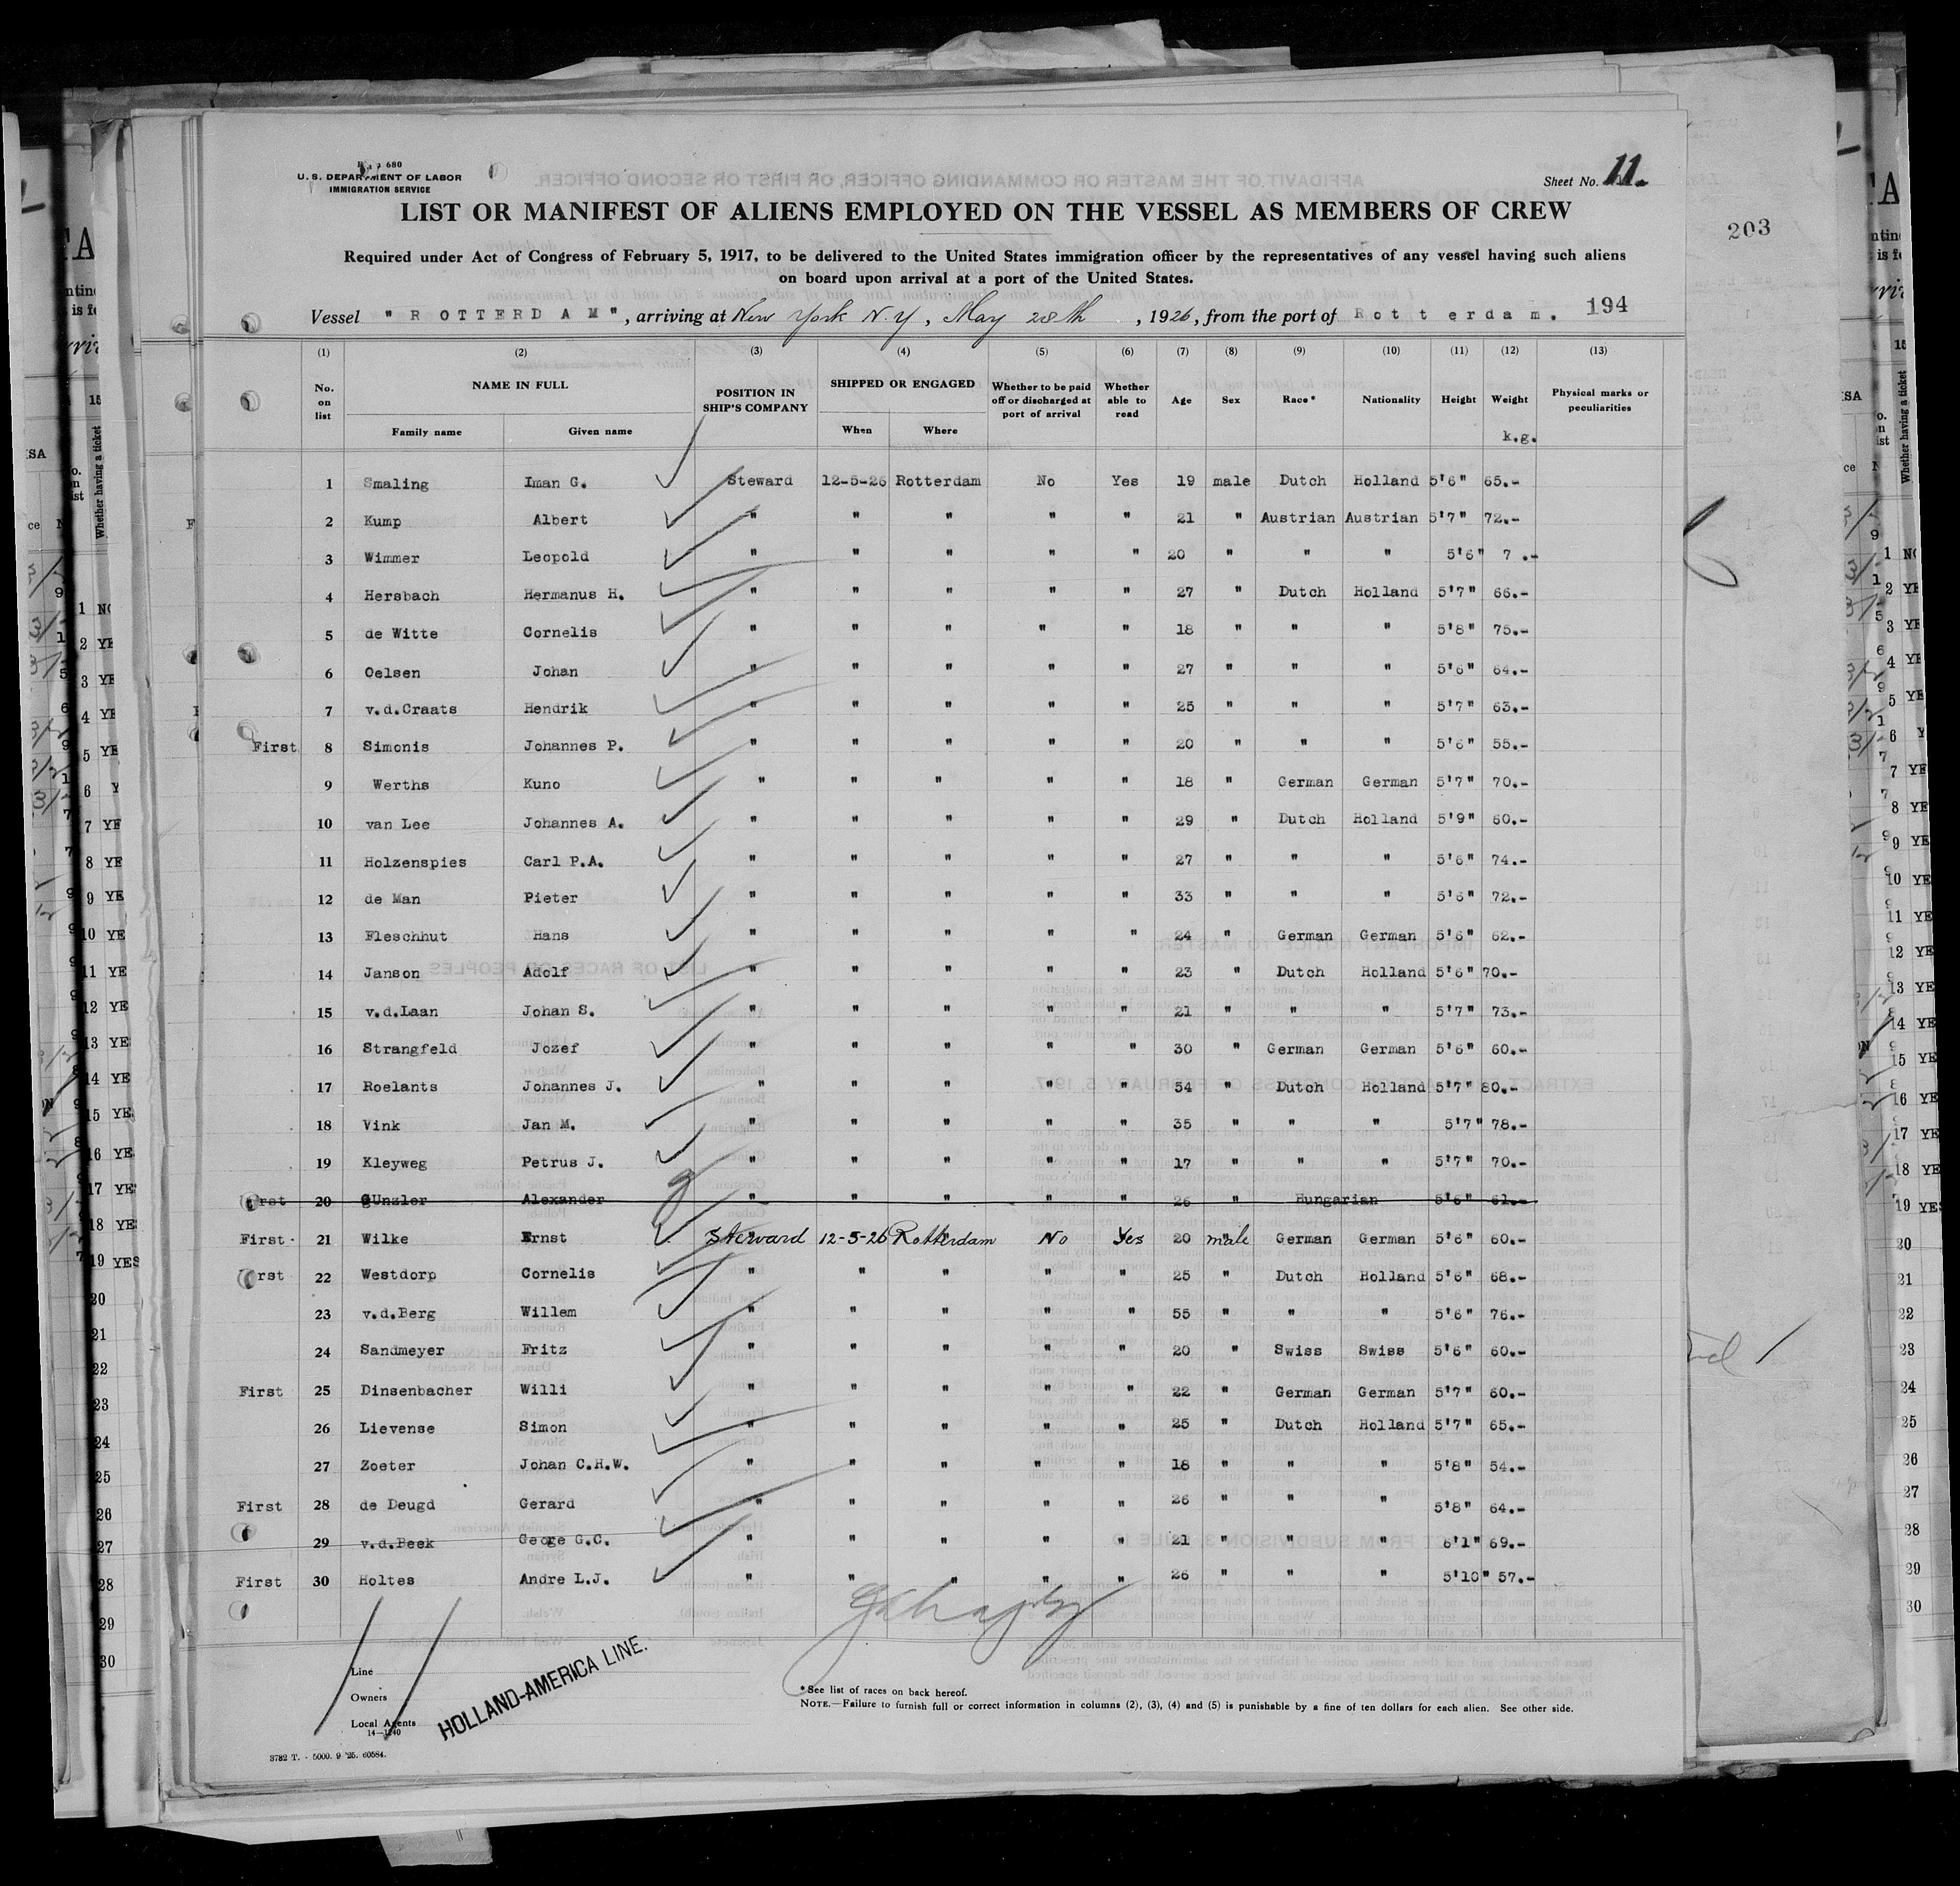 680
U. S. DEPARTMENT OF LABOR
IMMIGRATION SERVICE
Sheet No. 11.
LIST OR MANIFEST OF ALIENS EMPLOYED ON THE VESSEL AS MEMBERS OF CREW
203
Required under Act of Congress of February 5, 1917, to be delivered to the United States immigration officer by the representatives of any vessel having such aliens
on board upon arrival at a port of the United States.
Vessel "ROTTERDAM", arriving at New York N.Y, May 28th, 1926, from the port of Rotterdam. 194
(1) (2) (3) (4) (5) (6) (7) (8) (9) (10) (11) (12) (13)
No. on list NAME IN FULL Family name Given name POSITION IN SHIP'S COMPANY SHIPPED OR ENGAGED When Where Whether to be paid off or discharged at port of arrival Whether able to read Age Sex Race* Nationality Height Weight k.g. Physical marks or peculiarities
1 Smaling Iman G. Steward 12-5-26 Rotterdam No Yes 19 male Dutch Holland 5'6" 65.-
2 Kump Albert " " " " " 21 " Austrian Austrian 5'7" 72.-
3 Wimmer Leopold " " " " " 20 " " " 5'6" 7 .-
4 Hersbach Hermanus H. " " " " " 27 " Dutch Holland 5'7" 66.-
5 de Witte Cornelis " " " " " 18 " " " 5'8" 75.-
6 Oelsen Johan " " " " " 27 " " " 5'6" 64.-
7 v.d.Craats Hendrik " " " " " 25 " " " 5'7" 63.-
First 8 Simonis Johannes P. " " " " " 20 " " " 5'6" 55.-
9 Werths Kuno " " " " " 18 " German German 5'7" 70.-
10 van Lee Johannes A. " " " " " 29 " Dutch Holland 5'9" 60.-
11 Holzenspies Carl P.A. " " " " " 27 " " " 5'6" 74.-
12 de Man Pieter " " " " " 33 " " " 5'6" 72.-
13 Fleschhut Hans " " " " " 24 " German German 5'6" 62.-
14 Janson Adolf " " " " " 23 " Dutch Holland 5'6" 70.-
15 v.d.Laan Johan S. " " " " " 21 " " " 5'7" 73.-
16 Strangfeld Jozef " " " " " 30 " German German 5'6" 60.-
17 Roelants Johannes J. " " " " " 54 " Dutch Holland 5'7" 80.-
18 Vink Jan M. " " " " " 35 " " " 5'7" 78.-
19 Kleyweg Petrus J. " " " " " 17 " " " 5'7" 70.-
First 20 gUnzler Alexander " " " " " 26 " Hungarian 5'6" 61.-
First 21 Wilke Ernst Steward 12-5-26 Rotterdam No Yes 20 male German German 5'6" 60.-
First 22 Westdorp Cornelis " " " " " 25 " Dutch Holland 5'6" 68.-
23 v.d.Berg Willem " " " " " 55 " " " 5'6" 76.-
24 Sandmeyer Fritz " " " " " 20 " Swiss Swiss 5'6" 60.-
First 25 Dinsenbacher Willi " " " " " 22 " German German 5'7" 60.-
26 Lievense Simon " " " " " 25 " Dutch Holland 5'7" 65.-
27 Zoeter Johan C.H.W. " " " " " 18 " " " 5'8" 54.-
First 28 de Deugd Gerard " " " " " 26 " " " 5'8" 64.-
29 v.d.Beek Geoge G.C. " " " " " 21 " " " 6'1" 69.-
First 30 Holtes Andre L.J. " " " " " 26 " " " 5'10" 57.-
Line
Owners
Local Agents
14—1240
HOLLAND-AMERICA LINE.
*See list of races on back hereof.
NOTE.—Failure to furnish full or correct information in columns (2), (3), (4) and (5) is punishable by a fine of ten dollars for each alien. See other side.
3782 T. - 5000. 9 '25. 60584.